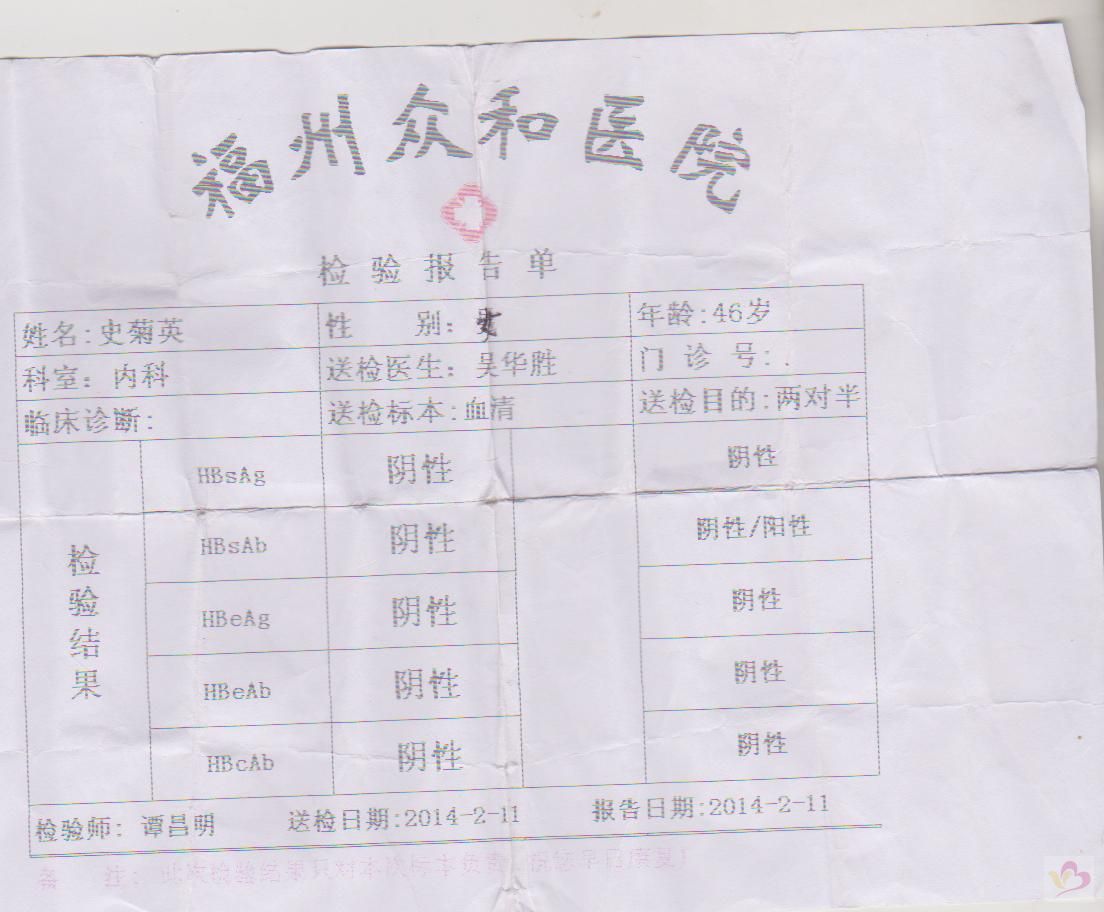 福州众和医院
检验报告单
姓名:史菊英 性 别: 年龄:46岁
科室: 内科 送检医生: 吴华胜 门 诊 号: .
临床诊断: 送检标本:血清 送检目的:两对半
检验结果
HBsAg 阴性 阴性
HBsAb 阴性 阴性/阳性
HBeAg 阴性 阴性
HBeAb 阴性 阴性
HBcAb 阴性 阴性
检验师: 谭昌明 送检日期:2014-2-11 报告日期:2014-2-11
备 注: 此次检验结果只对本次标本负责 祝您早日康复!